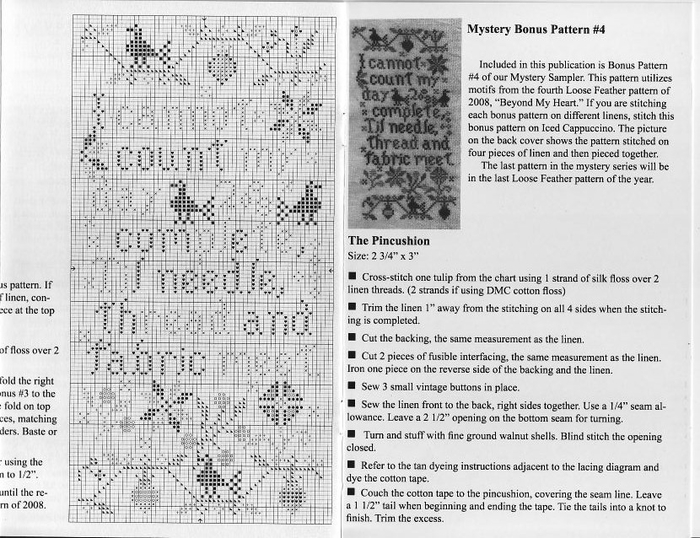 us pattern. If
f linen, con-
ece at the top
of floss over 2
fold the right
onus #3 to the
fold on top
ces, matching
ders. Baste or
using the
n to 1/2".
until the re-
rn of 2008.
I cannot
count my
day
complete,
Til needle,
thread and
fabric meet
I cannot
count my
day
complete,
Til needle,
thread and
fabric meet
Mystery Bonus Pattern #4
Included in this publication is Bonus Pattern
#4 of our Mystery Sampler. This pattern utilizes
motifs from the fourth Loose Feather pattern of
2008, "Beyond My Heart." If you are stitching
each bonus pattern on different linens, stitch this
bonus pattern on Iced Cappuccino. The picture
on the back cover shows the pattern stitched on
four pieces of linen and then pieced together.
The last pattern in the mystery series will be
in the last Loose Feather pattern of the year.
The Pincushion
Size: 2 3/4" x 3"
■ Cross-stitch one tulip from the chart using 1 strand of silk floss over 2
linen threads. (2 strands if using DMC cotton floss)
■ Trim the linen 1" away from the stitching on all 4 sides when the stitch-
ing is completed.
■ Cut the backing, the same measurement as the linen.
■ Cut 2 pieces of fusible interfacing, the same measurement as the linen.
Iron one piece on the reverse side of the backing and the linen.
■ Sew 3 small vintage buttons in place.
■ Sew the linen front to the back, right sides together. Use a 1/4" seam al-
lowance. Leave a 2 1/2" opening on the bottom seam for turning.
■ Turn and stuff with fine ground walnut shells. Blind stitch the opening
closed.
■ Refer to the tan dyeing instructions adjacent to the lacing diagram and
dye the cotton tape.
■ Couch the cotton tape to the pincushion, covering the seam line. Leave
a 1 1/2" tail when beginning and ending the tape. Tie the tails into a knot to
finish. Trim the excess.